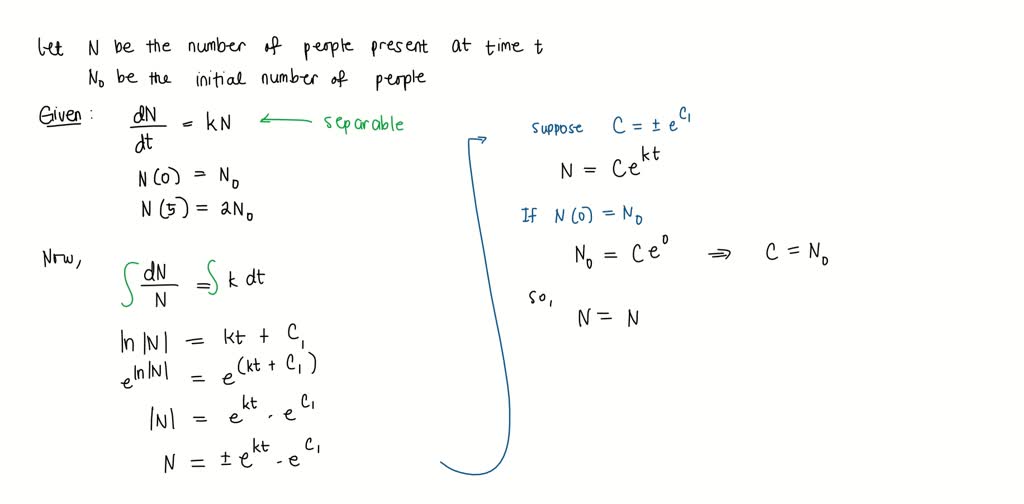 Let N be the number of people present at time t
N₀ be the initial number of people
Given: dN/dt = kN ← separable
N(0) = N₀
N(5) = 2N₀
Now,
∫ dN/N = ∫ k dt
ln |N| = kt + C₁
e^(ln|N|) = e^(kt + C₁)
|N| = e^(kt) · e^(C₁)
N = ± e^(kt) · e^(C₁)
Suppose C = ± e^(C₁)
N = Ce^(kt)
If N(0) = N₀
N₀ = Ce⁰ ⇒ C = N₀
So,
N = N